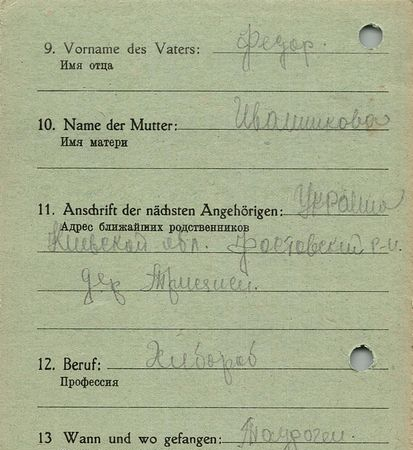 9. Vorname des Vaters: Федор.
Имя отца
10. Name der Mutter: Ивашикова
Имя матери
11. Anschrift der nächsten Angehörigen: Украина
Адрес ближайших родственников
Киевской обл. Фастовский р-н.
дер
12. Beruf: Хлебороб
Профессия
13 Wann und wo gefangen: Таураген.